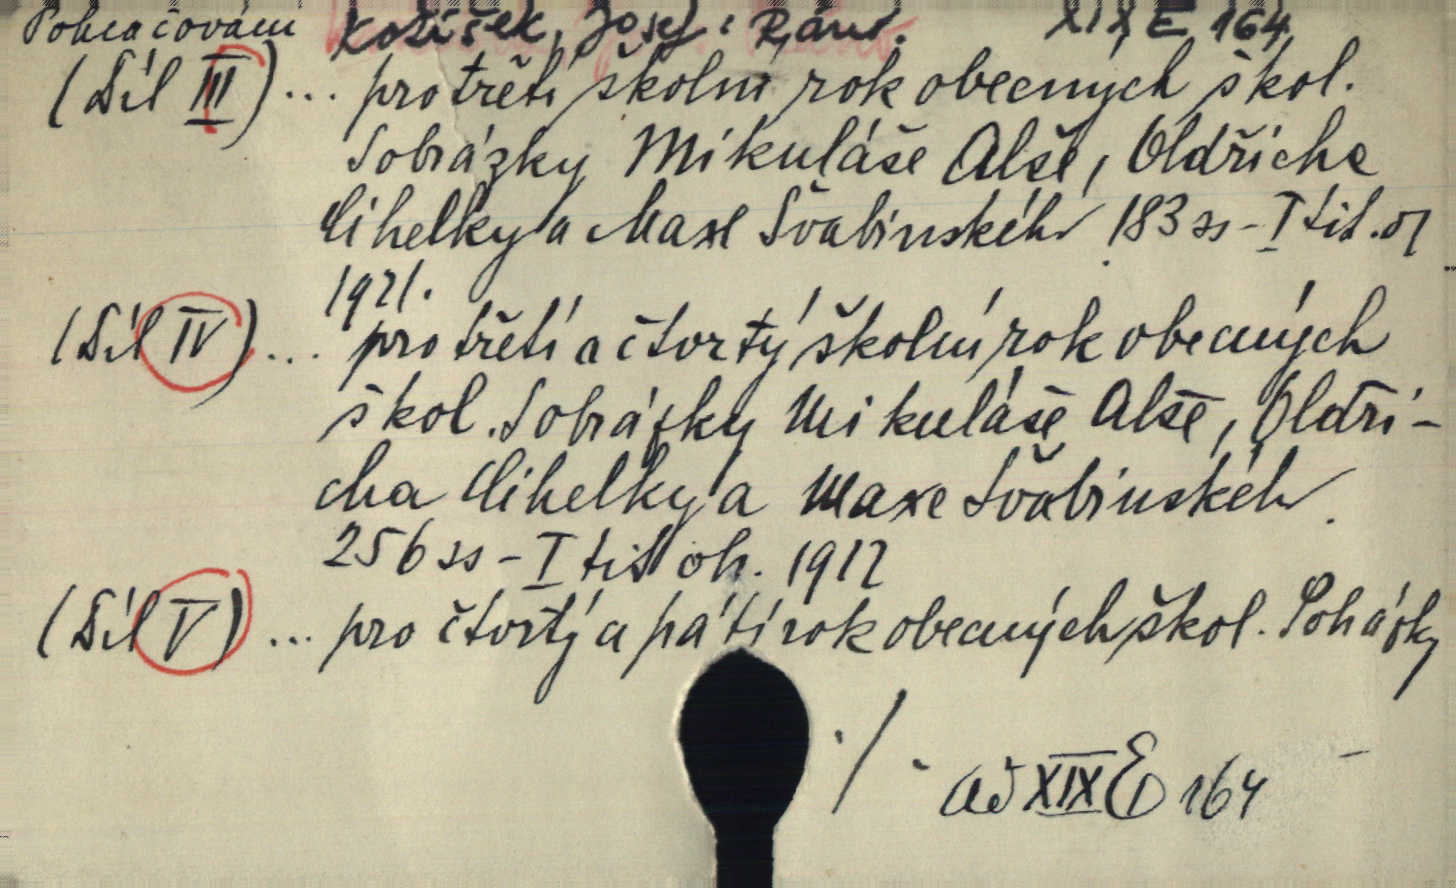 Pokračování Kožíšek, Josef: Ráno. XIX E 164.
(Díl III) ... pro třetí školní rok obecných škol.
S obrázky Mikuláše Alše, Oldřicha
Cihelky a Maxe Švabinského 183 ss - I tit. ol
1921.
(Díl IV) ... pro třetí a čtvrtý školní rok obecných
škol. S obrázky Mikuláše Alše, Oldři-
cha Cihelky a Maxe Švabinského.
256 ss - I tit ob. 1912
(Díl V) ... pro čtvrtý a pátý rok obecných škol. S obrázky
./.
ad XIX E 164